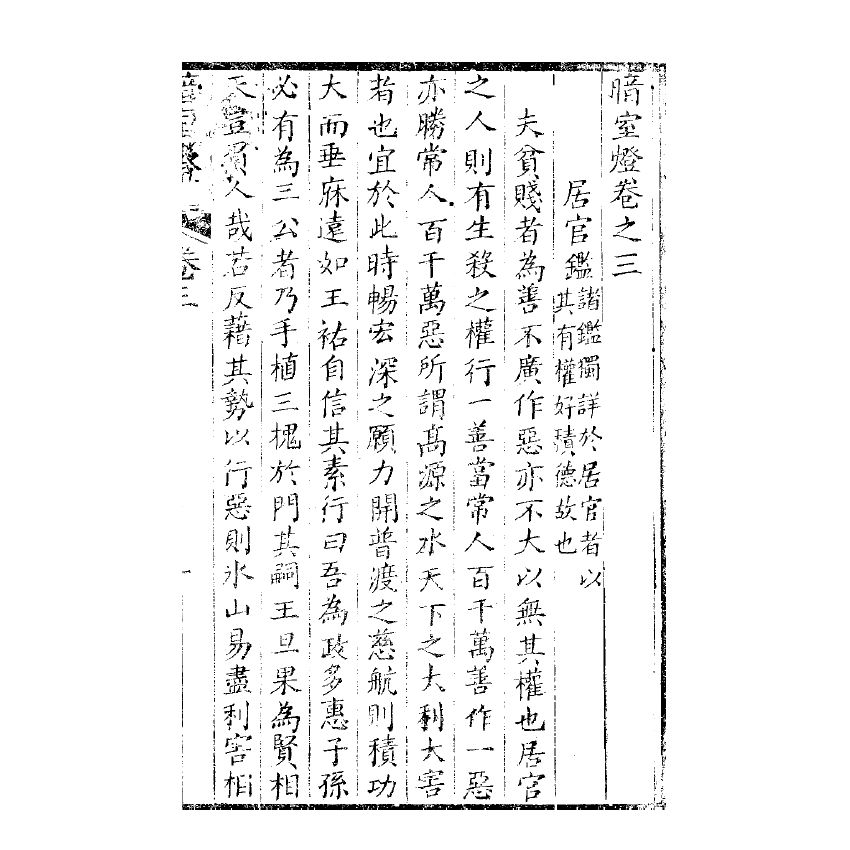 暗室燈卷之三
居官鑑諸鑑獨詳於居官者以其有權好積德故也
夫貧賤者為善不廣作惡亦不大以無其權也居官
之人則有生殺之權行一善當常人百千萬善作一惡
亦勝常人百千萬惡所謂高源之水天下之大利大害
者也宜於此時暢宏深之願力開普渡之慈航則積功
大而垂庥遠如王祐自信其素行曰吾為政多惠子孫
必有為三公者乃手植三槐於門其嗣王旦果為賢相
天豈負人哉若反藉其勢以行惡則氷山易盡利害相
暗室燈 卷三 一